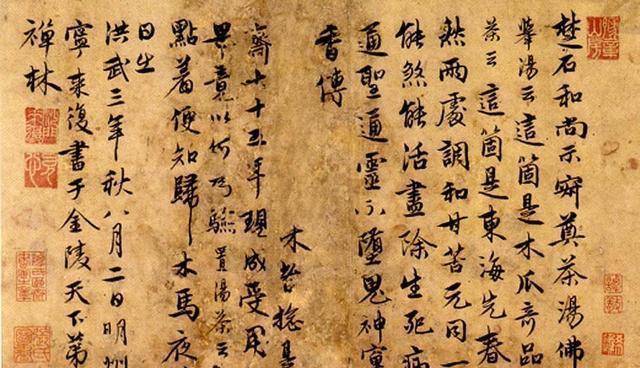 楚石和尚示寂奠茶湯佛
擧湯云這箇是木瓜奇品
茶云這箇是東海先春
然兩處調和甘苦元同一
能煞能活盡除生死病
通聖通靈不墮鬼神窟
香傳
木
齋七十五年現成受用
畢竟以何為驗置湯茶云
點着便知歸木馬夜
日生
洪武三年秋八月二日明州
寧來復書于金陵天下第
禪林